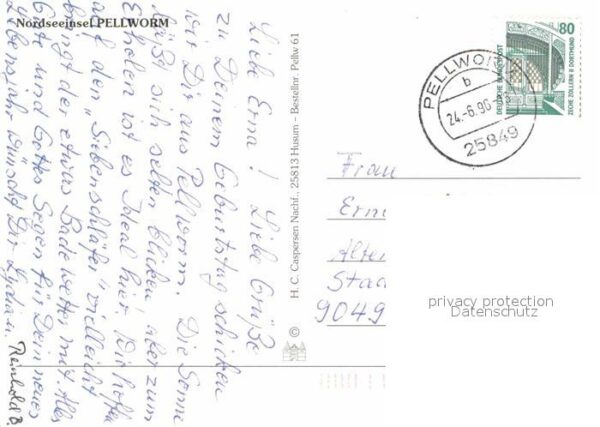 Nordseeinsel PELLWORM
Liebe Erna! Liebe Grüße
zu Deinem Geburtstag schicken
wir Dir aus Pellworm. Die Sonne
läßt sich selten blicken, aber zum
Erholen ist es Ideal hier. Wir hoffen
auf den „Siebenschläfer" vielleicht
bringt der etwas Badewetter mit. Alles
Gute und Gottes Segen für Dein neues
Lebensjahr wünscht Dir Lydia u.
Reinhold B.
© H. C. Caspersen Nachf., 25813 Husum – Bestellnr. Pellw 61
80
DEUTSCHE BUNDESPOST
ZECHE ZOLLERN II DORTMUND
PELLWORM
b
24.-6.96
25849
Frau
Erna
Alten
Stad
9049
privacy protection
Datenschutz